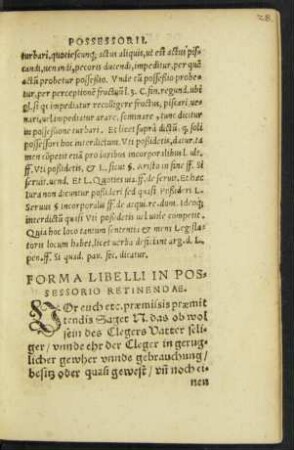 28.
POSSESSORII.
turbari, quotiescunq, actus aliquis, ut est actus pis⸗
candi, uenandi, pecoris ducendi, impeditur, per quē
actū probetur possessio. Vnde cū possessio probe⸗
tur, per perceptionē fructuū l. 3. C. fin. regund. ubi
gl. si quis impediatur recolligere fructus, piscari, uena⸗
nari, uel impediatur arare, seminare, tunc dicitur
in possessione turbari. Et licet suprà dictū. q. soli
possessori hoc interdictum. Vti possidetis, datur, ta⸗
men cōpetit etiā pro iuribus incorporalibus l. ult.
ff. Vti possidetis, & L. sicut §. aristo in fine ff. si
seruit. uend. Et L. Quoties uia. ff. de seruit. Et hæc
iura non dicuntur possideri sed quasi Possideri L.
Seruus §. incorporales ff. de acqu. re. dom. ideoq;
interdictū quasi Vti possidetis uel utile competit.
Quia hoc loco tantum sententia & mens Legisla⸗
toris locum habet, licet uerba desint. arg. d. L.
pen. ff. Si quad. pau. fec. dicatur.
FORMA LIBELLI IN POS⸗
SESSORIO RETINENDAE.
VOr euch etc. præmissis præmit
tendis Saget N. das ob wol
sein des Clegers Vatter seli⸗
ger / vnnde ehr der Cleger in gerug⸗
licher gewher vnnde gebrauchung /
besitz oder quasi gewest / vñ noch ei⸗
nen